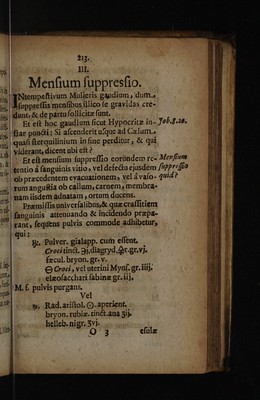 213.
III.
Mensium suppressio.
INtempestivum Mulieris gaudium, dum
suppressis mensibus illico se gravidas cre-
dunt, & de partu sollicitæ sunt.
Et est hoc gaudium sicut Hypocritæ in-
Job. 3. 20.
star puncti: Si ascenderit usque ad Cælum
quasi sterquilinium in fine perditur, & qui
viderant, dicent ubi est?
Et est mensium suppressio eorundem re-
Mensium
tentio à sanguinis vitio, vel defectu ejusdem
suppressio
ob præcedentem evacuationem, vel à vaso-
quid?
rum angustia ob callum, carnem, membra-
nam iisdem adnatam, ortum ducens.
Præmissis universalibus, & quæ crassitiem
sanguinis attenuando & incidendo præpa-
rant, sequens pulvis commode adhibetur,
qui:
℞. Pulver. gialapp. cum essent.
Croci tinct. ℈j. diagryd. gr. vj.
fæcul. bryon. gr. v.
Croci, vel uterini Myns. gr. iiij.
elæosacchari sabinæ gr. ij.
M. f. pulvis purgans.
Vel
℞. Rad. aristol. aperient.
bryon. rubiæ. tinct. ana ʒij
helleb. nigr. ʒvj.
O 3
esulæ